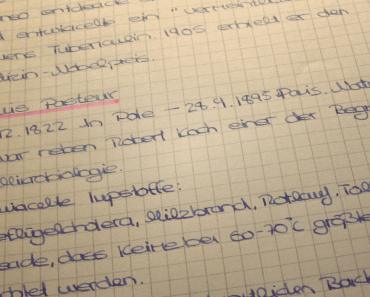 entdeckte
entwickelte ein "vermeintli
Tuberkulin. 1905 erhielt er den
izin-Nobelpreis.
us Pasteur
12.1822 in Dole - 28.9.1895 Paris.
war neben Robert Koch einer der Begr
Mikrobiologie.
wickelte Impfstoffe:
eflügelcholera, Milzbrand, Rotlauf, Toll
dass Keime bei 60-70°C größte
chtet werden.